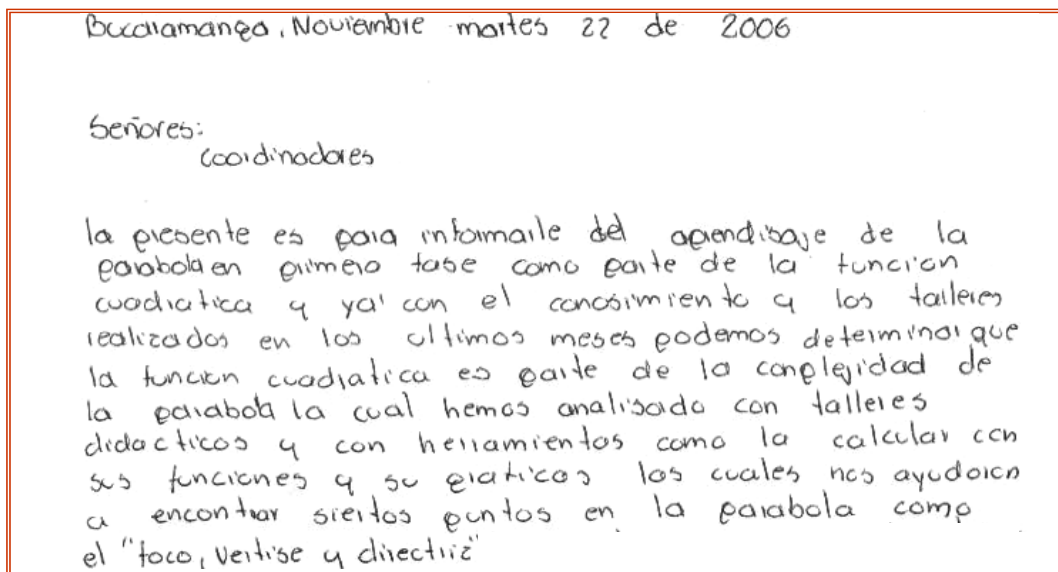 Bucaramanga, Noviembre martes 22 de 2006
Señores:
coordinadores
la presente es para informarle del aprendisaje de la
parabola en primero fase como parte de la funcion
cuadratica y ya con el conosimiento y los talleres
realizados en los ultimos meses podemos determinar que
la funcion cuadratica es parte de la conplejidad de
la parabola la cual hemos analisado con talleres
didacticos y con herramientas como la calcular con
sus funciones y su graficos los cuales nos ayudoron
a encontrar siertos puntos en la parabola como
el "foco, vertise y directriz"